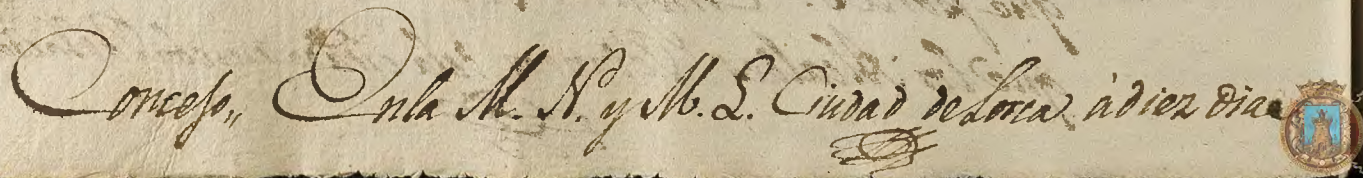 Concejo,, En la M. N. y M. L. Ciudad de Lorca à diez dias